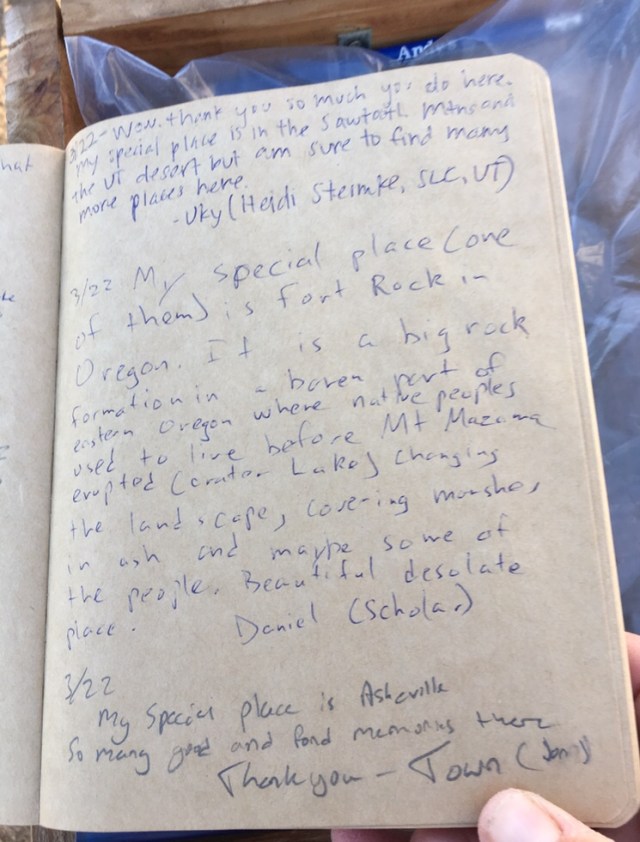 And
hat
3/22 - Wow. thank you so much you do here.
my special place is in the Sawtooth Mtns and
the UT desert but am sure to find many
more places here.
- Uky (Heidi Steimke, SLC, UT)
3/22 My special place (one
of them) is Fort Rock in
Oregon. It is a big rock
formation in a baren part of
eastern Oregon where native peoples
used to live before Mt Mazama
erupted (Crater Lake) changing
the landscape, covering marshes
in ash and maybe some of
the people. Beautiful desolate
place. Daniel (Scholar)
3/22
My special place is Asheville
So many good and fond memories there
Thank you - Town